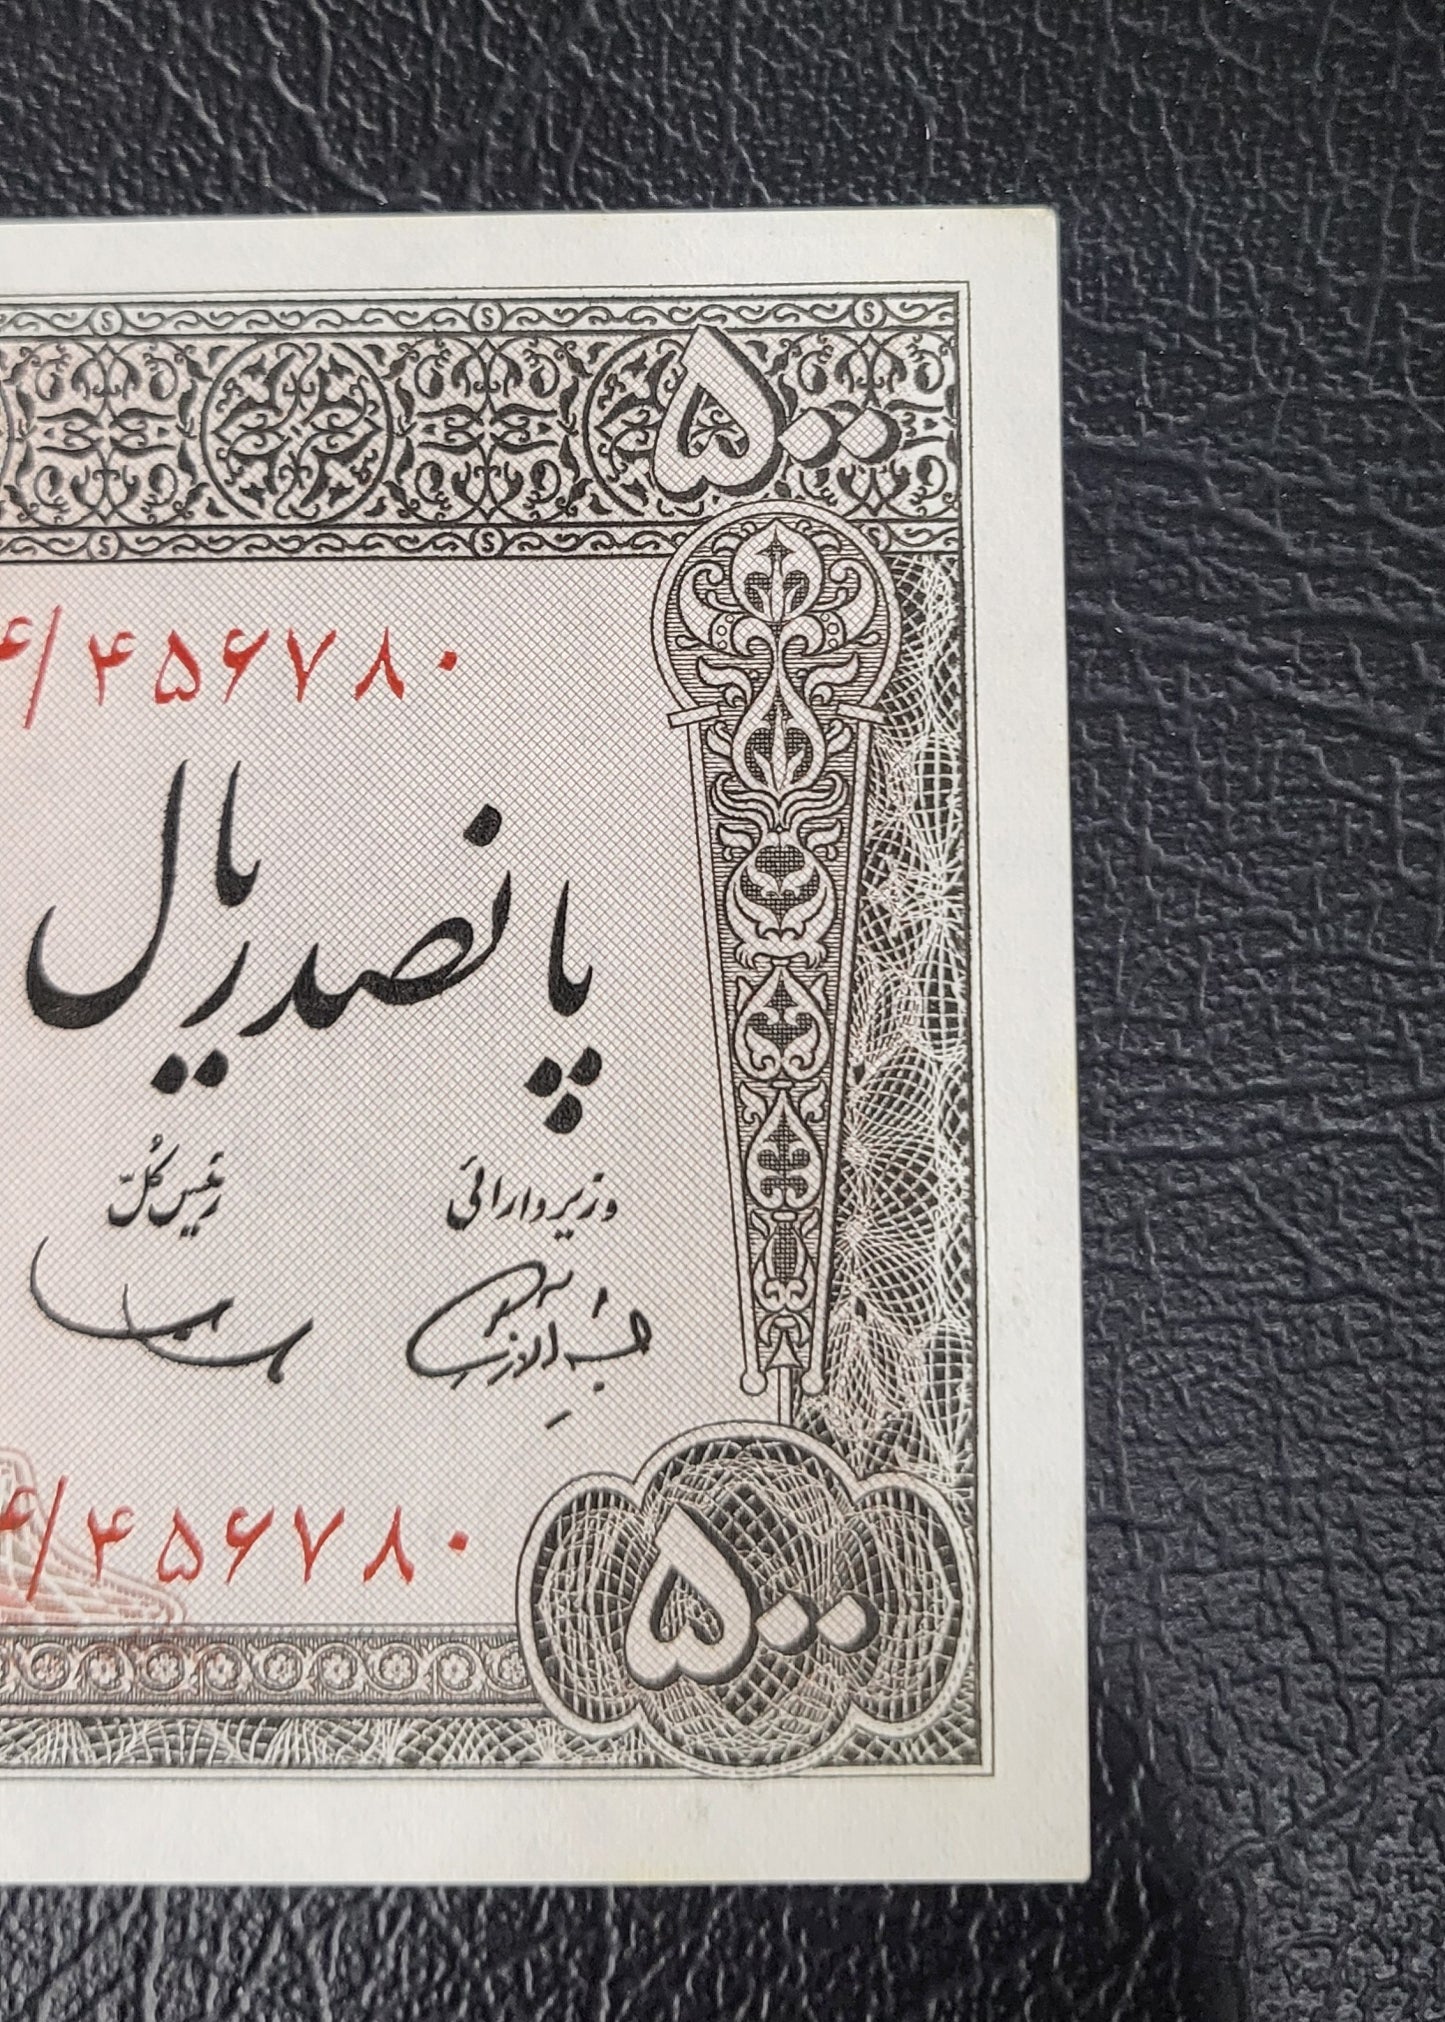 ۵۰۰
۴/۴۵۶۷۸۰
پانصد ریال
وزیر دارائی
رئیس کلّ
۴/۴۵۶۷۸۰
۵۰۰